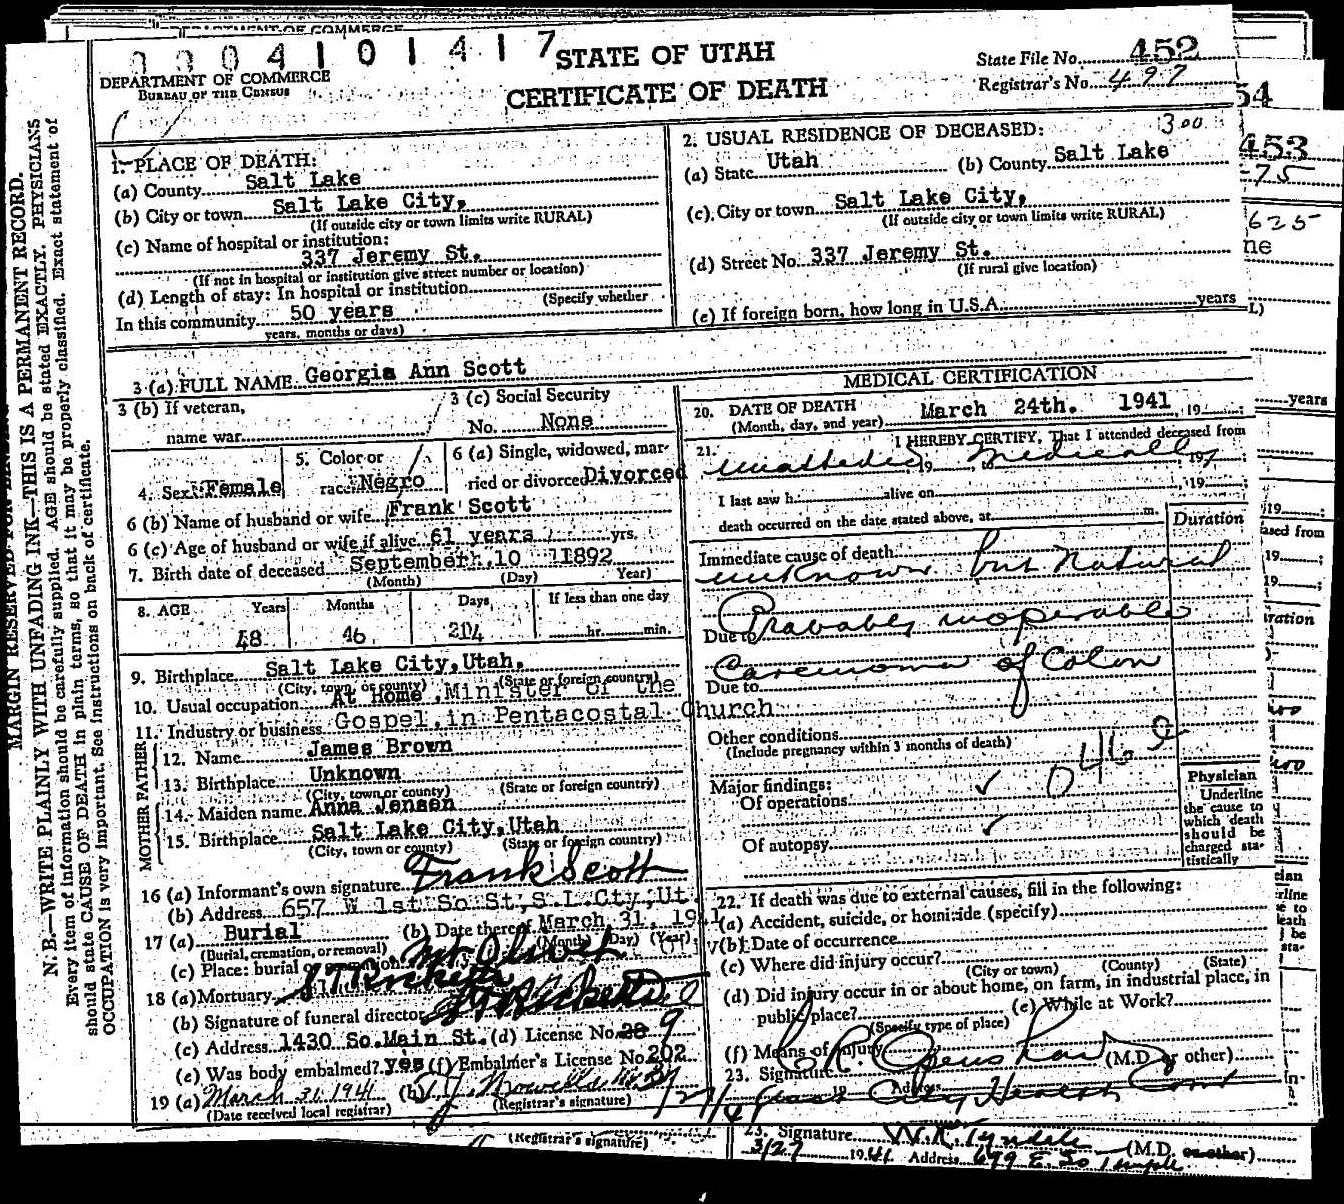 DEPARTMENT OF COMMERCE
0004101417
STATE OF UTAH
CERTIFICATE OF DEATH
DEPARTMENT OF COMMERCE
BUREAU OF THE CENSUS
State File No. 452
Registrar's No. 497
MARGIN RESERVED FOR
N. B.—WRITE PLAINLY WITH UNFADING INK—THIS IS A PERMANENT RECORD.
Every item of information should be carefully supplied. AGE should be stated EXACTLY. PHYSICIANS
should state CAUSE OF DEATH in plain terms, so that it may be properly classified. Exact statement of
OCCUPATION is very important. See instructions on back of certificate.
1. PLACE OF DEATH:
(a) County Salt Lake
(b) City or town Salt Lake City,
(If outside city or town limits write RURAL)
(c) Name of hospital or institution:
337 Jeremy St.
(If not in hospital or institution give street number or location)
(d) Length of stay: In hospital or institution
(Specify whether
In this community 50 years
years, months or days)
2. USUAL RESIDENCE OF DECEASED: 300
(a) State Utah (b) County Salt Lake
(c) City or town Salt Lake City,
(If outside city or town limits write RURAL)
(d) Street No. 337 Jeremy St.
(If rural give location)
(e) If foreign born, how long in U.S.A. years
3 (a) FULL NAME Georgia Ann Scott
3 (b) If veteran,
name war
3 (c) Social Security
No. None
4. Sex Female
5. Color or
race Negro
6 (a) Single, widowed, mar-
ried or divorced Divorced
6 (b) Name of husband or wife Frank Scott
6 (c) Age of husband or wife if alive 61 years yrs.
7. Birth date of deceased September 10 1892
(Month) (Day) Year)
8. AGE Years Months Days If less than one day
48 hr. min.
9. Birthplace Salt Lake City, Utah.
(City, town, or county) (State or foreign country)
10. Usual occupation At Home, Minister of the
11. Industry or business Gospel, in Pentacostal Church
FATHER
12. Name James Brown
13. Birthplace Unknown
(City, town or county) (State or foreign country)
MOTHER
14. Maiden name Anna Jensen
15. Birthplace Salt Lake City, Utah
(City, town or county) (State or foreign country)
16 (a) Informant's own signature Frank Scott
(b) Address 657 W 1st So St, S.L. Cty, Ut.
17 (a) Burial (b) Date thereof March 31, 1941
(Burial, cremation, or removal) (Month) (Day) (Year)
(c) Place: burial or Mt. Olivet
18 (a) Mortuary
(b) Signature of funeral director
(c) Address 1430 So. Main St. (d) License No. 9
(e) Was body embalmed? yes (f) Embalmer's License No. 202
19 (a) March 31, 1941 (b)
(Date received local registrar) (Registrar's signature)
MEDICAL CERTIFICATION
20. DATE OF DEATH
(Month, day, and year) March 24th. 1941, 19
21. I HEREBY CERTIFY, That I attended deceased from
unattended 19 to medically 19
I last saw h alive on , 19
death occurred on the date stated above, at m.
Duration
Immediate cause of death
unknown but Natural
Due to Probably inoperable
Carcinoma of Colon
Due to
Other conditions
(Include pregnancy within 3 months of death)
Major findings:
Of operations ✓
Of autopsy ✓
046 e
Physician
Underline
the cause to
which death
should be
charged sta-
tistically
22. If death was due to external causes, fill in the following:
(a) Accident, suicide, or homicide (specify)
(b) Date of occurrence
(c) Where did injury occur?
(City or town) (County) (State)
(d) Did injury occur in or about home, on farm, in industrial place, in
public place? (e) While at Work?
(Specify type of place)
(f) Means of injury
23. Signature (M.D. or other)
19 Address City Health
(Registrar's signature)
23. Signature W.R. Tyndale (M.D. or other)
3/27 1941 Address 699 E. So Temple
54
453
-75
625
ne
L)
years
19
ased from
19
19
ration
cian
rline
e to
eath
be
sta-